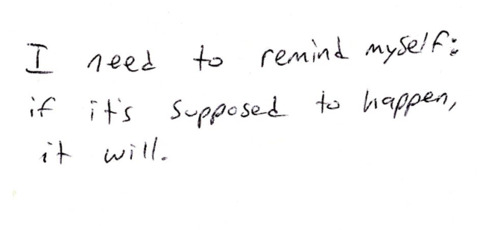 I need to remind myself:
if it's supposed to happen,
it will.